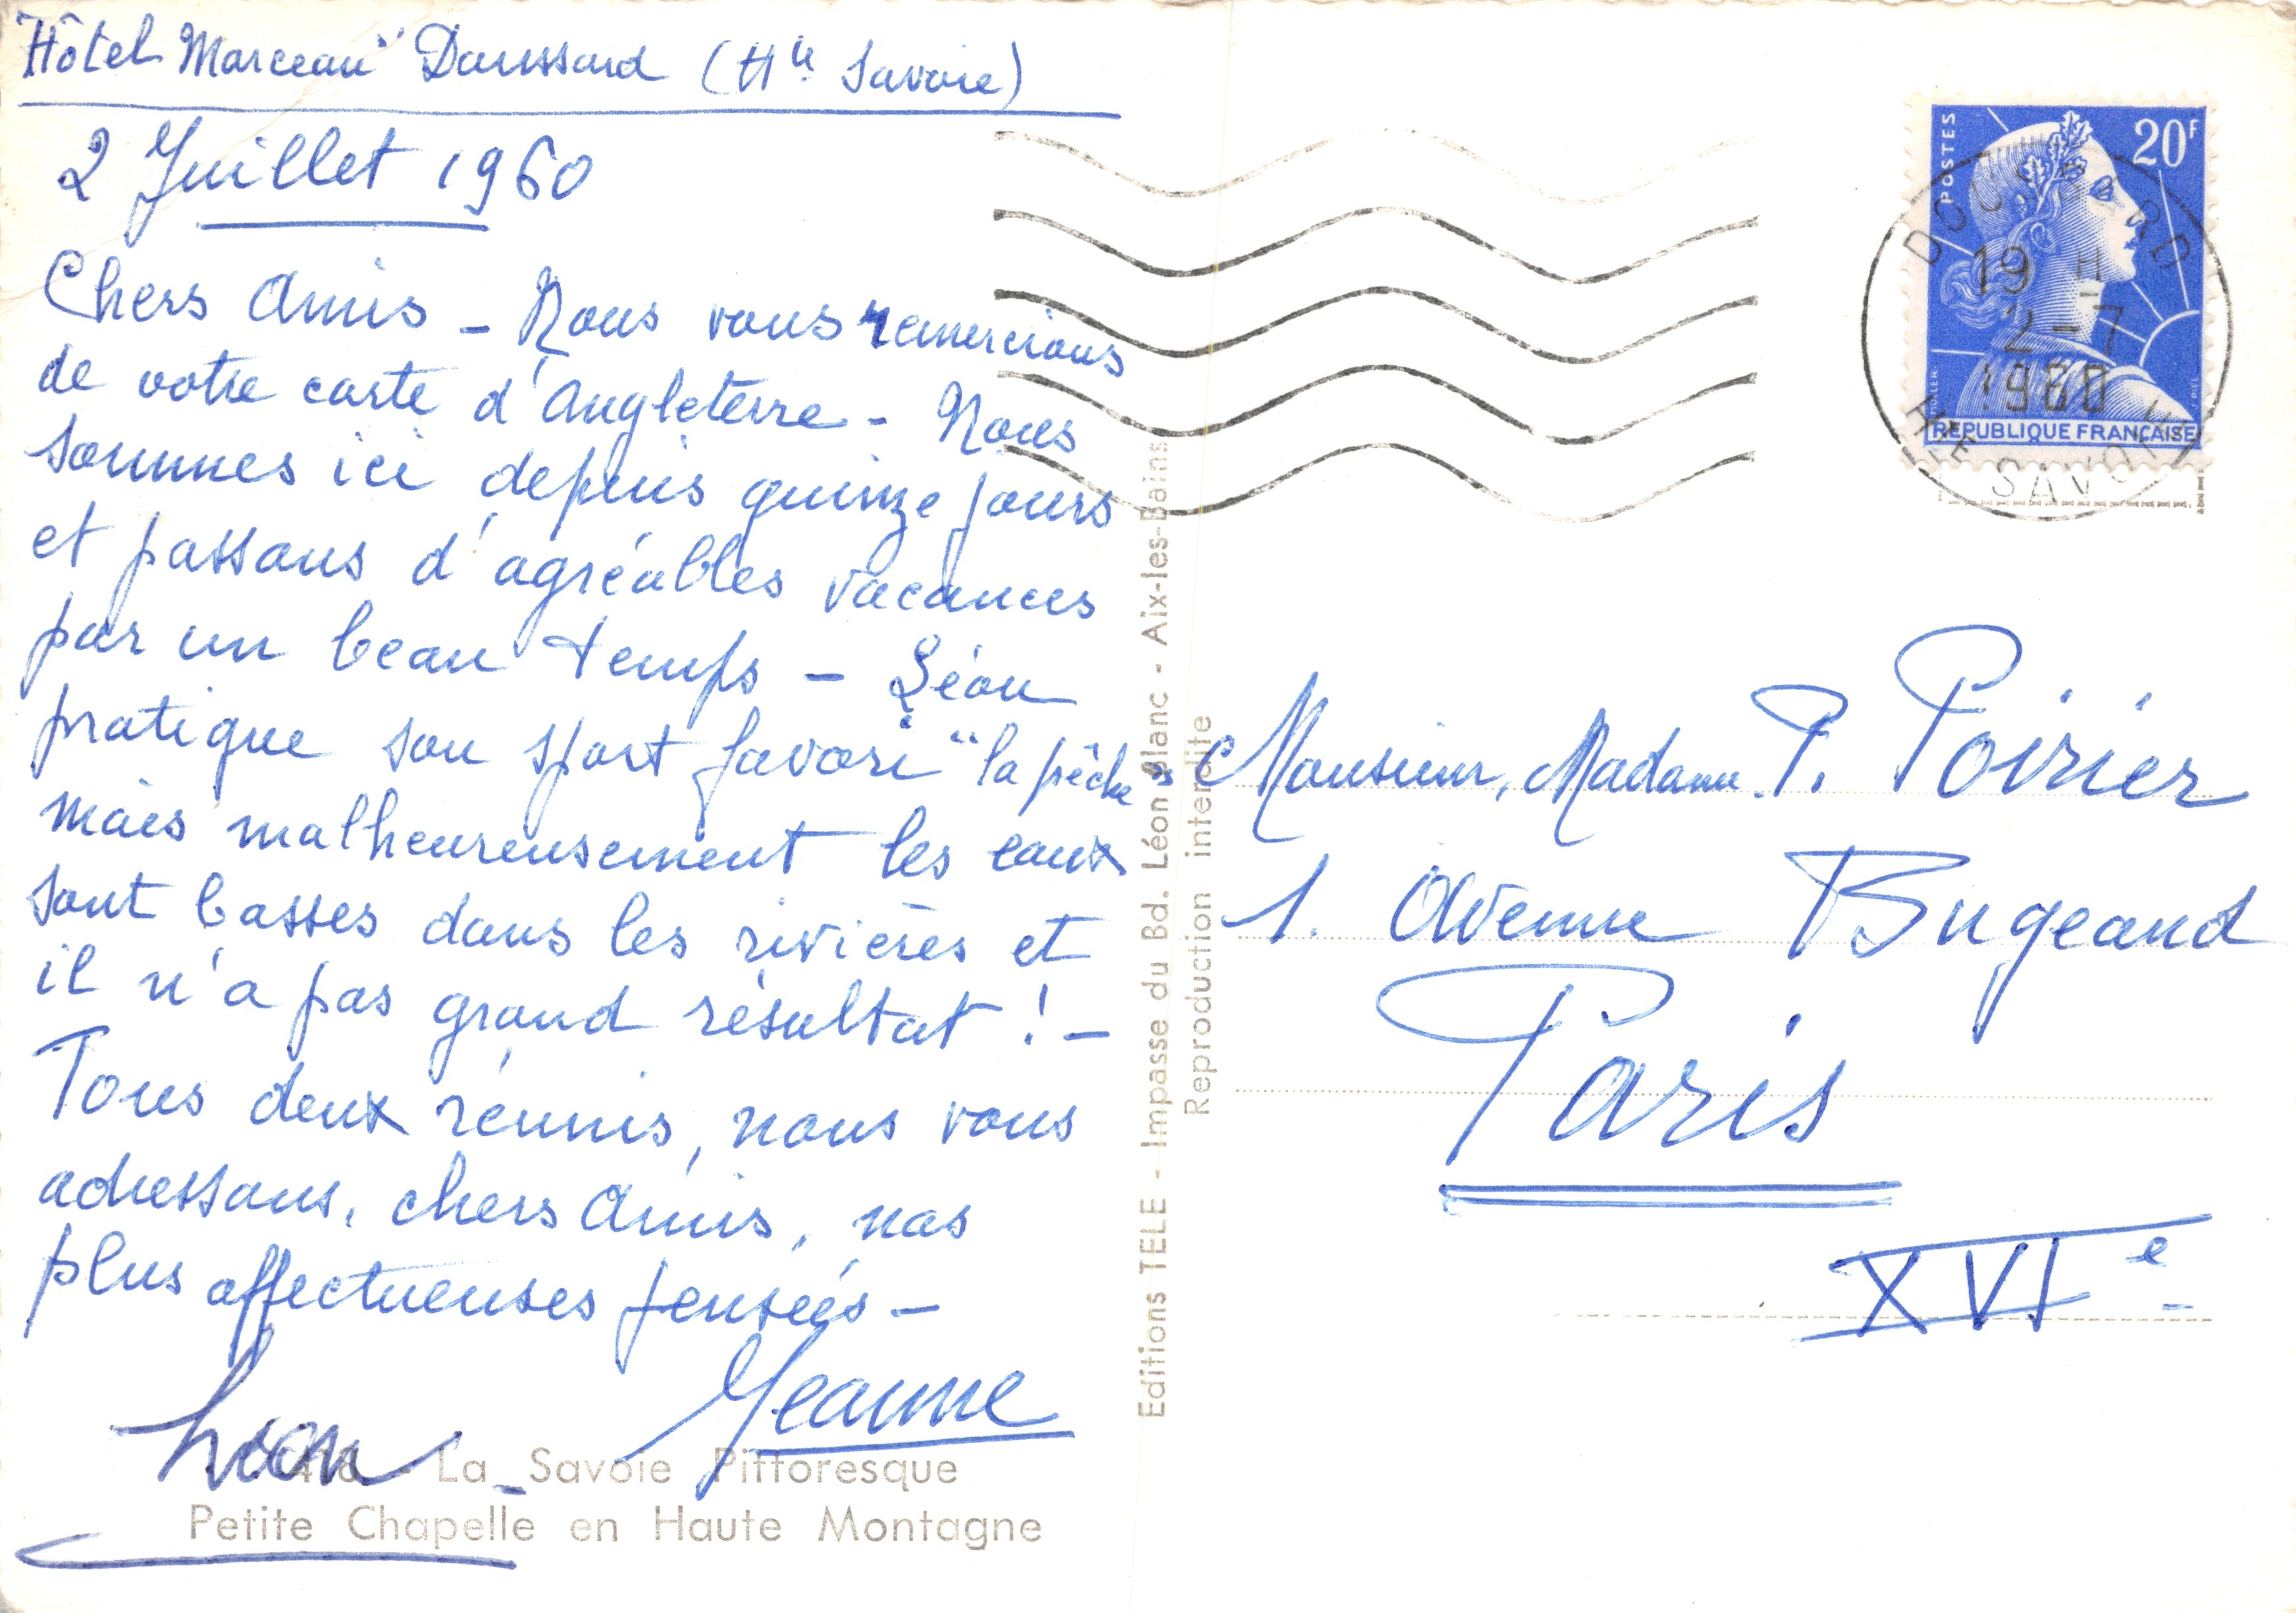 "Hôtel Marceau" Doussard (Hte Savoie)
2 Juillet 1960
Chers Amis - Nous vous remercions
de votre carte d'Angleterre - Nous
sommes ici depuis quinze jours
et passons d'agréables vacances
par un beau temps - Léon
pratique son sport favori "la pêche"
mais malheureusement les eaux
sont basses dans les rivières et
il n'a pas grand résultat ! -
Tous deux réunis, nous vous
adressons, chers Amis, nos
plus affectueuses pensées -
Jeanne
Léon
La Savoie Pittoresque
Petite Chapelle en Haute Montagne
Editions TELE - Impasse du Bd. Léon Blanc - Aix-les-Bains
Reproduction interdite
POSTES
20F
REPUBLIQUE FRANÇAISE
DOUSSARD
19 H
2-7
1960
HTE SAVOIE
Monsieur, Madame P. Poirier
1. Avenue Bugeaud
Paris
XVIe